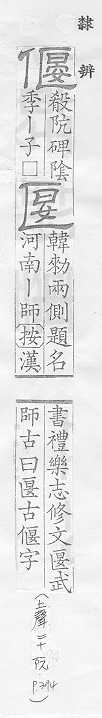 隸辨
偃
殽阬碑陰
季丨子□
匽
韓勑兩側題名
河南丨師按漢
書禮樂志修文匽武
師古曰匽古偃字
(上聲二十阮